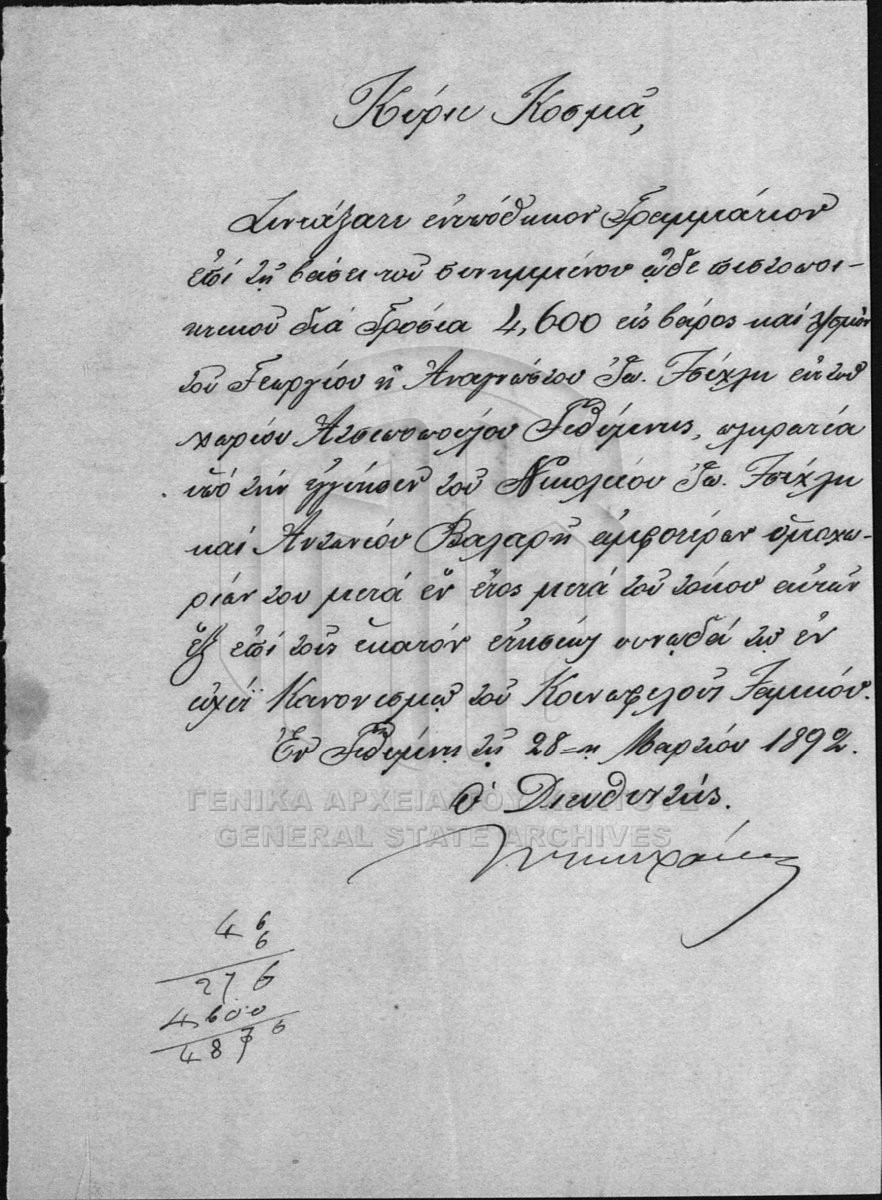 Κύριε Κοσμᾶ,
Συντάξατε ἐνυπόθηκον Γραμμάτιον
ἐπί τῇ βάσει τοῦ συνημμένου ὧδε πιστοποι-
ητικοῦ διά Γρόσια 4,600 εἰς βάρος καί
τοῦ Γεωργίου ἤ Ἀναγνώστου Ἰω. Τσίχλη ἐκ τοῦ
χωρίου Ἀτσιποπούλου Ῥεθύμνης, πληρωτέα
ὑπό τήν ἐγγύησιν τοῦ Νικολάου Ἰω. Τσίχλη
καί Ἀντωνίου Βαλαρῆ ἀμφοτέρων ὁμοχω-
ρίων του μετά ἕν ἔτος μετά τοῦ τόκου αὐτῶν
ἕξ ἐπί τοῖς ἑκατόν ἐτησίως συνῳδά τῷ ἐν
ἰσχύϊ Κανονισμῷ τοῦ Κοινωφελοῦς Ταμείου.
Ἐν Ῥεθύμνῃ τῇ 28=ῃ Μαρτίου 1892.
Ὁ Διευθυντής.
ΓΕΝΙΚΑ ΑΡΧΕΙΑ ΤΟΥ ΚΡΑΤΟΥΣ
GENERAL STATE ARCHIVES
4 6
6
276
4600
4876